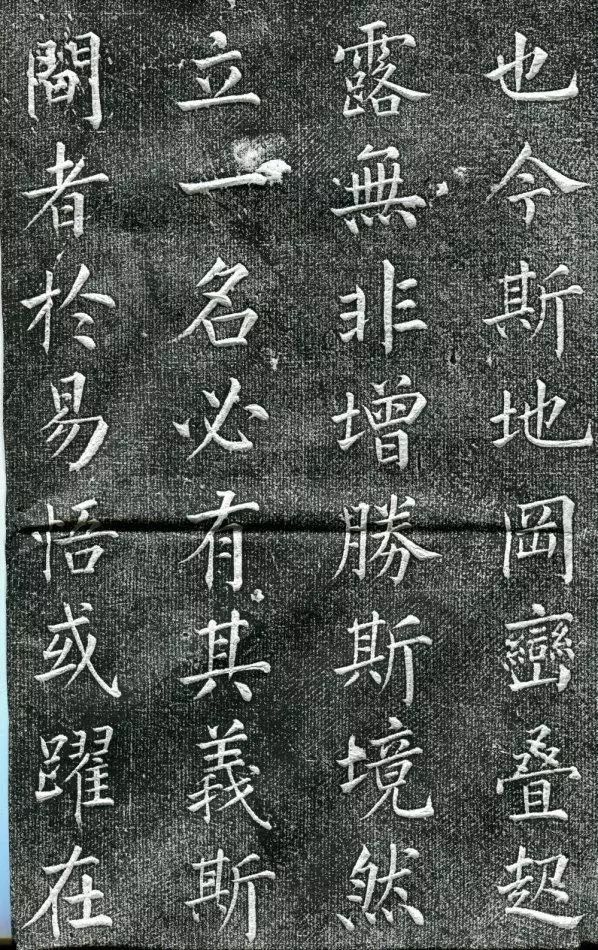 也今斯地岡巒叠起
露無非增勝斯境然
立一名必有其義斯
閣者於易悟或躍在